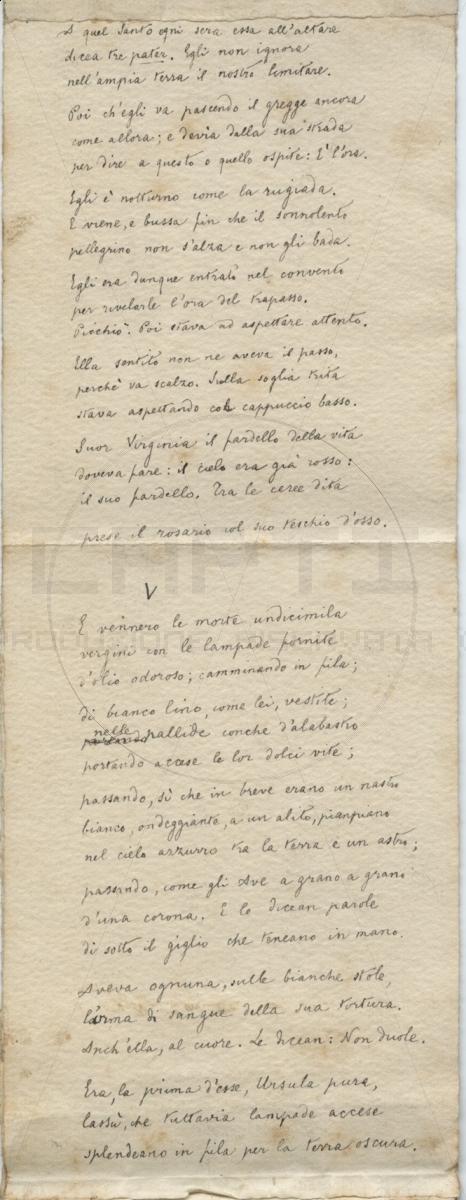 A quel Santo ogni sera essa all'altare
dicea tre pater. Egli non ignora
nell'ampia terra il nostro limitare.
Poi ch'egli va pascendo il gregge ancora
come allora; e devia dalla sua strada
per dire a questo o quello ospite: È l'ora.
Egli è notturno come la rugiada.
E viene, e bussa fin che il sonnolento
pellegrino non s'alza e non gli bada.
Egli era dunque entrato nel convento
per rivelarle l'ora del trapasso.
Picchiò. Poi stava ad aspettare attento.
Ella sentito non ne aveva il passo,
perchè va scalzo. Sulla soglia trita
stava aspettando col cappuccio basso.
Suor Virginia il fardello della vita
doveva fare: il cielo era già rosso:
il suo fardello. Tra le ceree dita
prese il rosario col suo teschio d'osso.
V
E vennero le morte undicimila
vergini con le lampade fornite
d'olio odoroso; camminando in fila;
di bianco lino, come lei, vestite;
nelle pallide conche d'alabastro
portando accese le lor dolci vite;
passando, sì che in breve erano un nastro
bianco, ondeggiante, a un alito, pianpiano
nel cielo azzurro tra la terra e un astro;
passando, come gli Ave a grano a grano
d'una corona. E lo dicean parole
di sotto il giglio che teneano in mano.
Aveva ognuna, sulle bianche stole,
l'orma di sangue della sua tortura.
Anch'ella, al cuore. Le dicean: Non duole.
Era, la prima d'esse, Ursula pura,
lassù, che tuttavia lampade accese
splendeano in fila per la terra oscura.